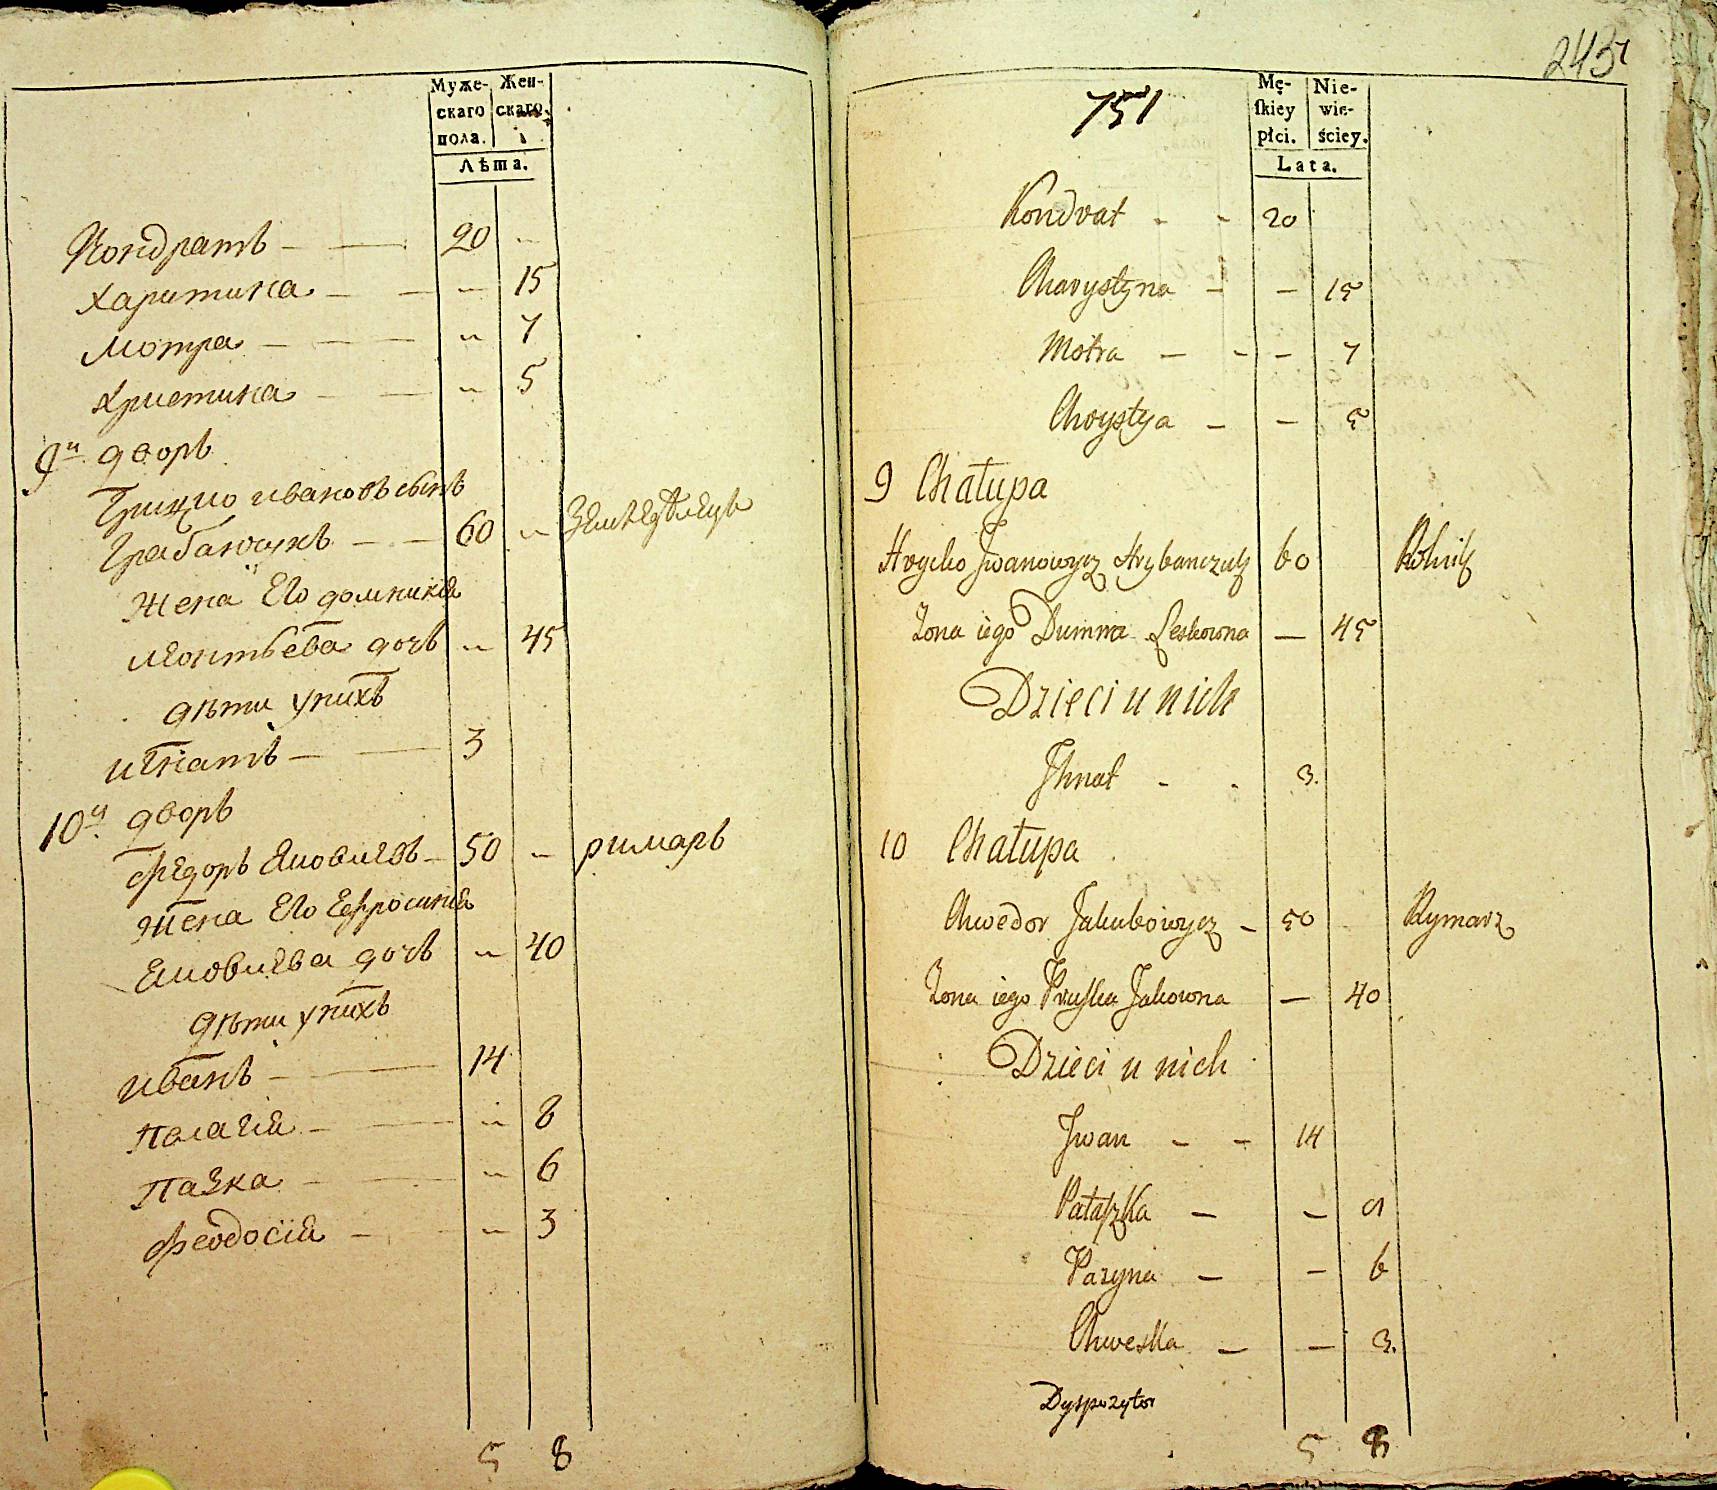 Муже-
скаго
пола.
Жен-
скаго.
Лѣта.
Кондратъ — — 20 „
Харитина — — „ 15
Мотра — — — „ 7
Христина — — „ 5
9й дворъ
Грицко Ивановъ сынъ
Грабанчукъ — — 60 „ Земледелецъ
Жена Его домникія
леонтьева дочь „ 45
дѣти унихъ
игнатъ — — 3
10й дворъ
Федоръ Яковлевъ — 50 „ римарь
Жена Его Ефросинія
Яковлева дочь „ 40
дѣти унихъ
иванъ — — 14
Палагія — — „ 8
Пазка — — „ 6
Феодосія — — „ 3
5 8
243
751
Mę-
skiey
płci.
Nie-
wie-
ściey.
Lata.
Kondrat - - 20
Charystyna - - 15
Motra — - - 7
Chrystya — - 5
9 Chałupa
Hrycko Jwanowycz Hrybanczuk 60 Rolnik
Zona iego Dumna Leskowna — 45
Dzieci u nich
Jhnat - - 3.
10 Chałupa
Chwedor Jakubowycz — 50 Rymarz
Zona iego Pruska Jakowna — 40
Dzieci u nich
Jwan - - 14
Pałaszka — — 8
Pazyna — — 6
Chweska — — 3.
Dyspozytor
5 8